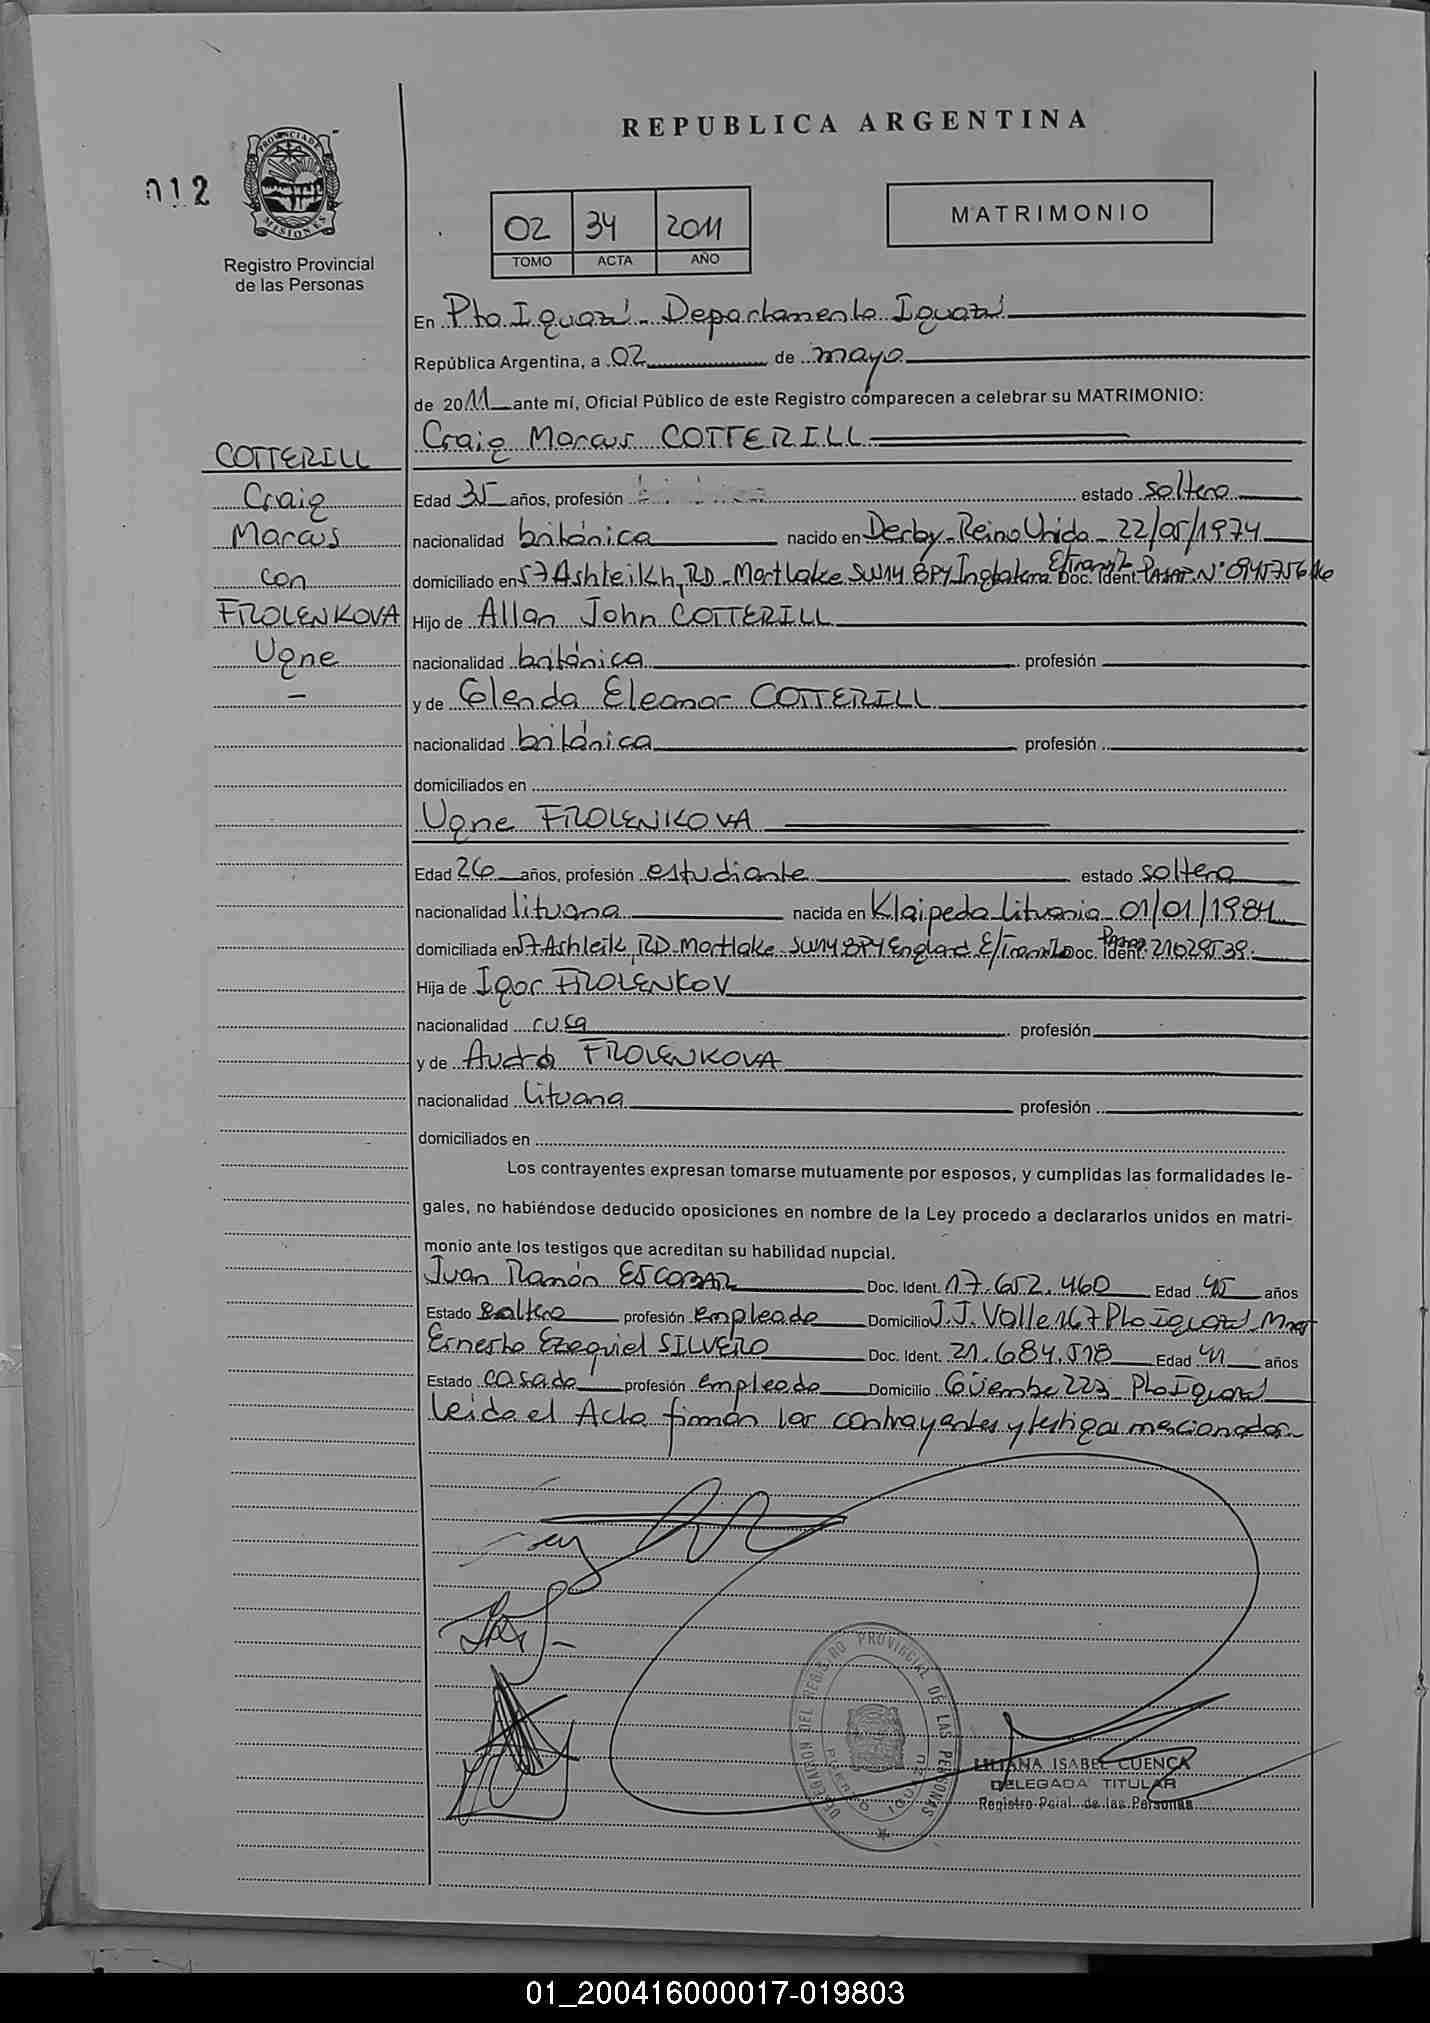 REPUBLICA ARGENTINA
012
PROVINCIA DE MISIONES
Registro Provincial
de las Personas
02 34 2011
TOMO ACTA AÑO
MATRIMONIO
En Pto Iguazú - Departamento Iguazú
República Argentina, a 02 de mayo
de 2011 ante mí, Oficial Público de este Registro comparecen a celebrar su MATRIMONIO:
Craig Marcus COTTERILL
COTTERILL
Craig
Marcus
con
FROLENKOVA
Ugne
Edad 35 años, profesión estado soltero
nacionalidad británica nacido en Derby - Reino Unido - 22/05/1974
domiciliado en 57 Ashleikh, RD - Mortlake SW14 8PY Inglaterra E/Transit Doc. Ident. PASAP. N°
Hijo de Allan John COTTERILL
nacionalidad británica profesión
y de Glenda Eleanor COTTERILL
nacionalidad británica profesión
domiciliados en
Ugne FROLENKOVA
Edad 26 años, profesión estudiante estado soltera
nacionalidad lituana nacida en Klaipeda Lituania - 01/01/1984
domiciliada en 57 Ashleik, RD - Mortlake - SW14 8PY Englad E/Transit Doc. Ident. Pasap. 21029539
Hija de Igor FROLENKOV
nacionalidad rusa profesión
y de Audra FROLENKOVA
nacionalidad lituana profesión
domiciliados en
Los contrayentes expresan tomarse mutuamente por esposos, y cumplidas las formalidades le-
gales, no habiéndose deducido oposiciones en nombre de la Ley procedo a declararlos unidos en matri-
monio ante los testigos que acreditan su habilidad nupcial.
Juan Ramón ESCOBAR Doc. Ident. 17.652.460 Edad 45 años
Estado soltero profesión empleado Domicilio J.J. Valle 167 Pto Iguazú Mnes
Ernesto Ezequiel SILVERO Doc. Ident. 21.684.518 Edad 41 años
Estado casado profesión empleado Domicilio Güembe 223 Pto Iguazú
Leida el Acta firman los contrayentes y testigos mencionados
DELEGACION DEL REGISTRO PROVINCIAL DE LAS PERSONAS
PUERTO IGUAZU
LILIANA ISABEL CUENCA
DELEGADA TITULAR
Registro Pcial. de las Personas
01_200416000017-019803